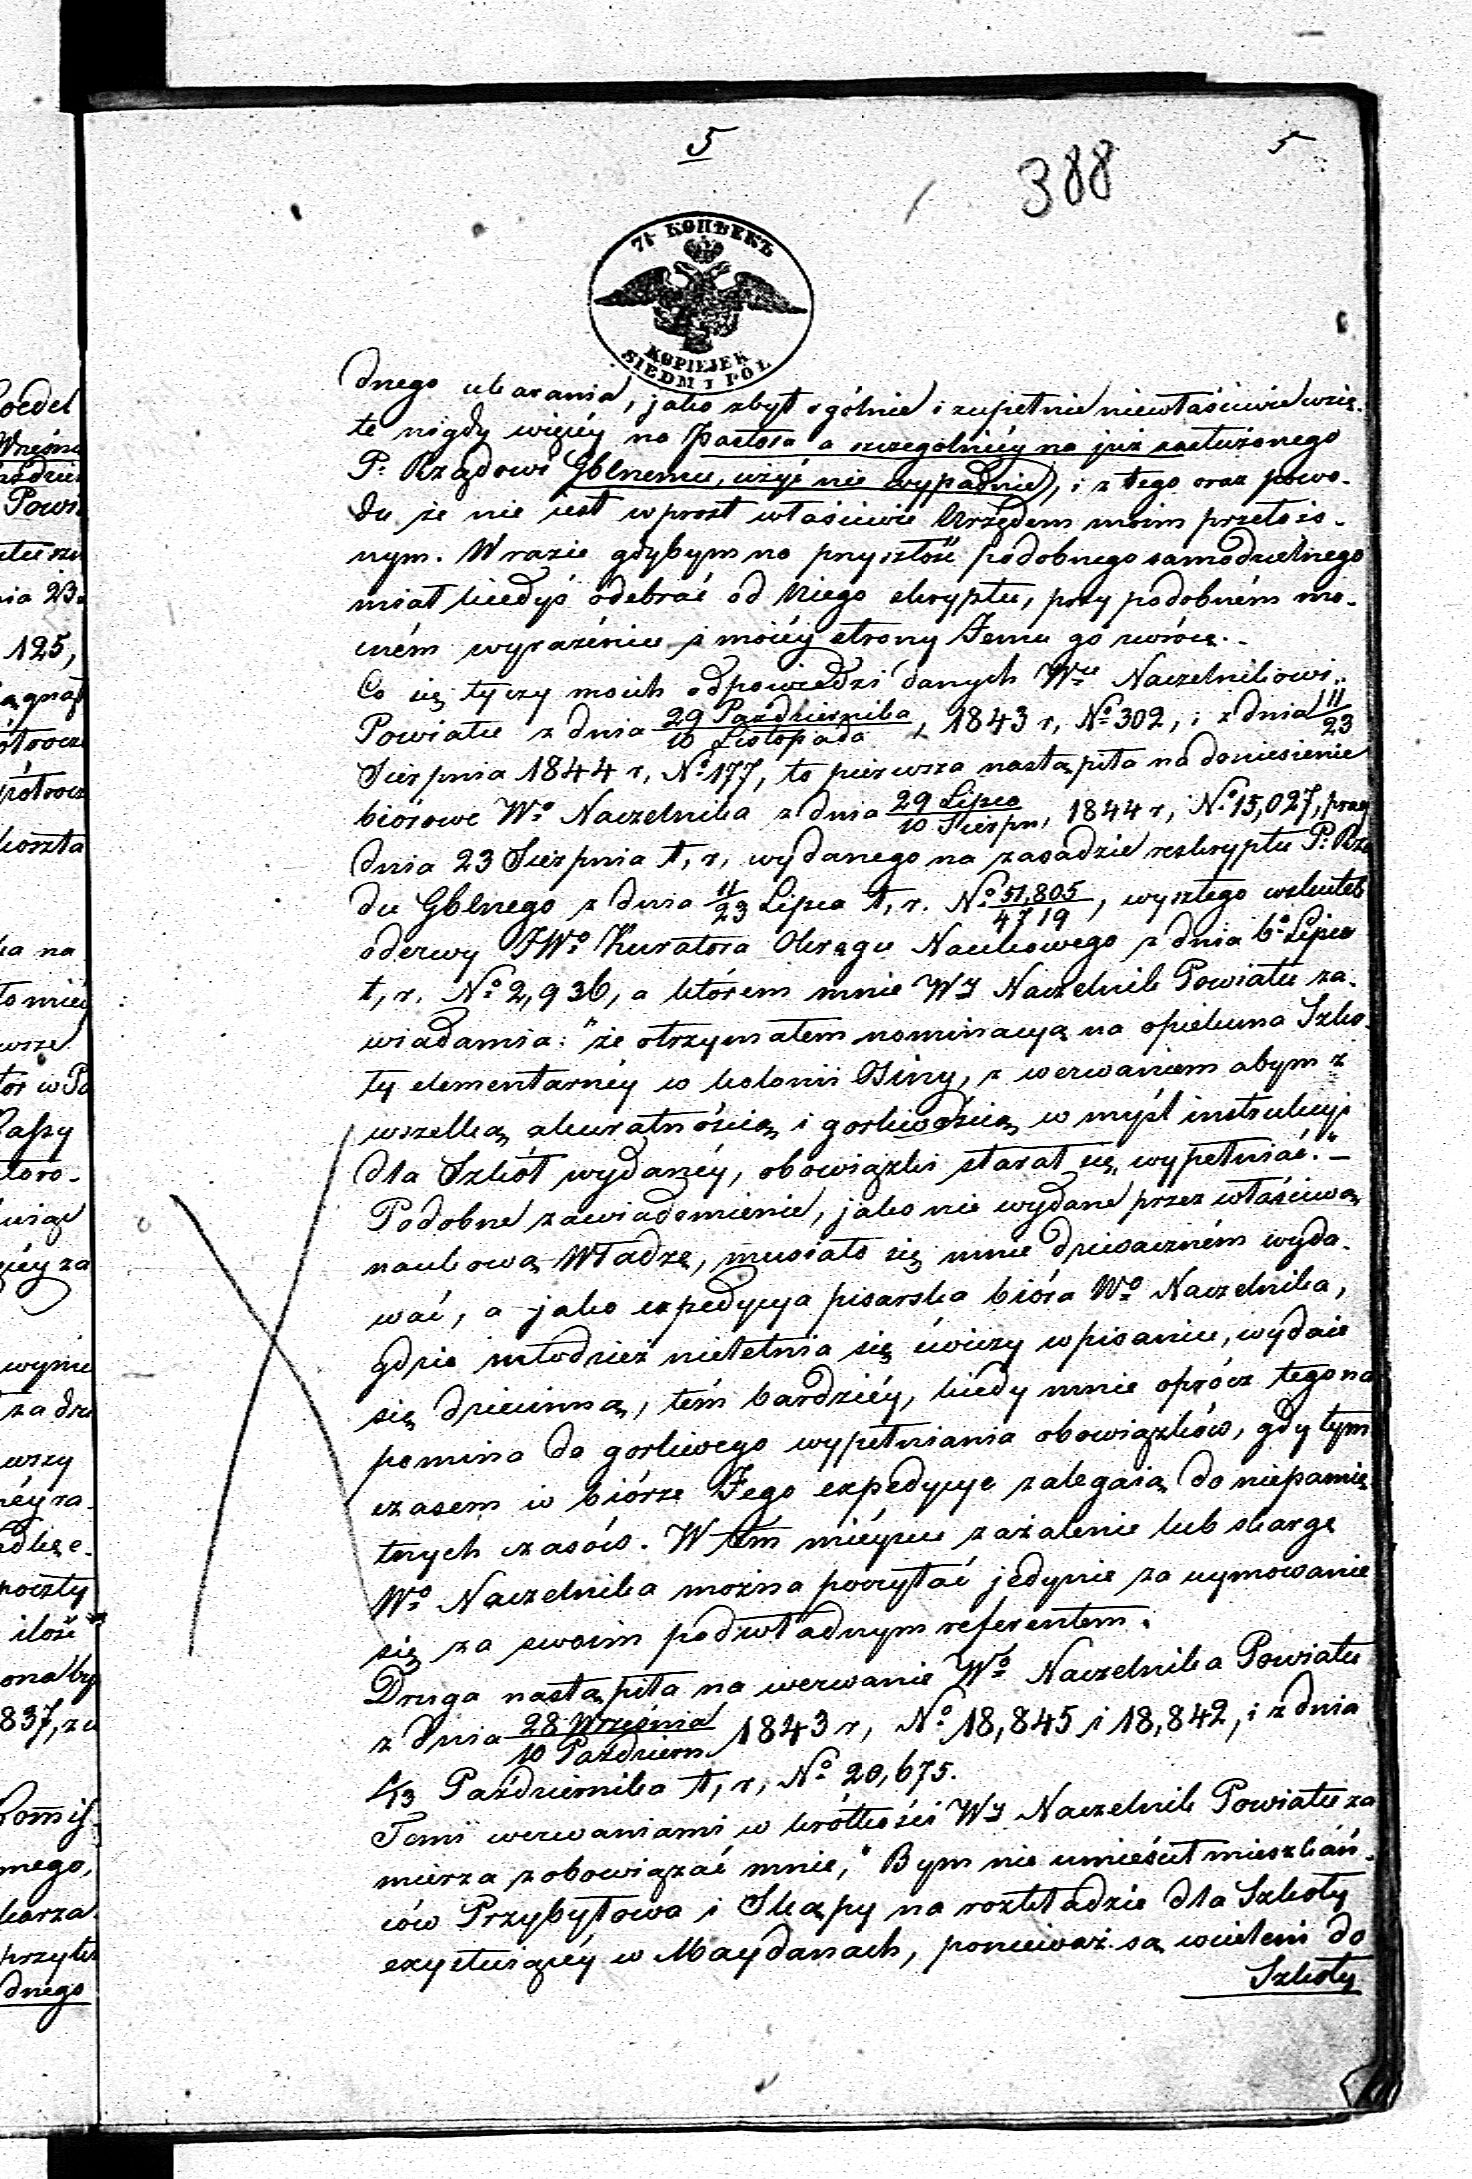 5
388
5
7½ КОПѢЕКЪ
KOPIEJEK
SIEDM I PÓŁ
dnego ukarania, jako zbyt ogólnie i zupełnie niewłaściwie wzię-
te nigdy więcéy na Pastora a szczególniéy na już zasłużonego
P: Rządowi Gblnemu, użyć nie wypadnie), i z tego oraz powo-
du że nie iest wprost właściwie Urzędem moim przełożo-
nym. W razie gdybym na przyszłość podobnego samodzielnego
miał kiedyś odebrać od Niego skryptu, przy podobném mo-
cném wyrażeniu z moiéy strony Jemu go zwrócę.-
Co się tyczy moich odpowiedzi danych Wmu Naczelnikowi
Powiatu z dnia 29 Października / 10 Listopada 1843 r, No 302, i z dnia 11/23
Sierpnia 1844 r, No 177, to pierwsza nastąpiła na doniesienie
biórowe Wo Naczelnika z dnia 29 Lipca / 10 Sierpn, 1844 r, No 15,027, praes
dnia 23 Sierpnia t, r, wydanego na zasadzie reskryptu P: Rzą
du Gblnego z dnia 11/23 Lipca t, r. No 51,805/4719, wyszłego wskutek
odezwy JWo Kuratora Okręgu Naukowego z dnia 6o Lipca
t, r. No 2,936, a którem mnie WJ Naczelnik Powiatu za-
wiadamia: "że otrzymałem nominacyą na opiekuna Szko-
ły elementarnéy w kolonii Osiny, z wezwaniem abym z
wszelką akuratnością i gorliwością w myśl instrukcyi
dla Szkół wydanéy, obowiązki starał się wypełniać."-
Podobne zawiadomienie, jako nie wydane przez właściwą
naukową Władzę, musiało się mnie dziwaczném wyda-
wać, a jako expedycya pisarska bióra Wo Naczelnika,
gdzie młodzież nieletnia się ćwiczy w pisaniu, wydaie
się dziecinną, tém bardziéy, kiedy mnie oprócz tego na
pomina do gorliwego wypełniania obowiązków, gdy tym
czasem w biórze Jego expedycye zalegaią do niepamię
tnych czasów. W tém mieyscu zażalenie lub skargę
Wo Naczelnika można poczytać jedynie za uymowanie
się za swoim podwładnym referentem.
Druga nastąpiła na wezwanie Wo Naczelnika Powiatu
z dnia 28 Września / 10 Październ 1843 r, No 18,845 i 18,842, i z dnia
1/13 Października t, r, No 20,675.
Temi wezwaniami w krótkości WJ Naczelnik Powiatu za
mierza zobowiązać mnie, "Bym nie umieścił mieszkań-
ców Przybyłowa i Skąpy na rozkładzie dla Szkoły
exystuiącéy w Maydanach, ponieważ są wcieleni do
Szkoły